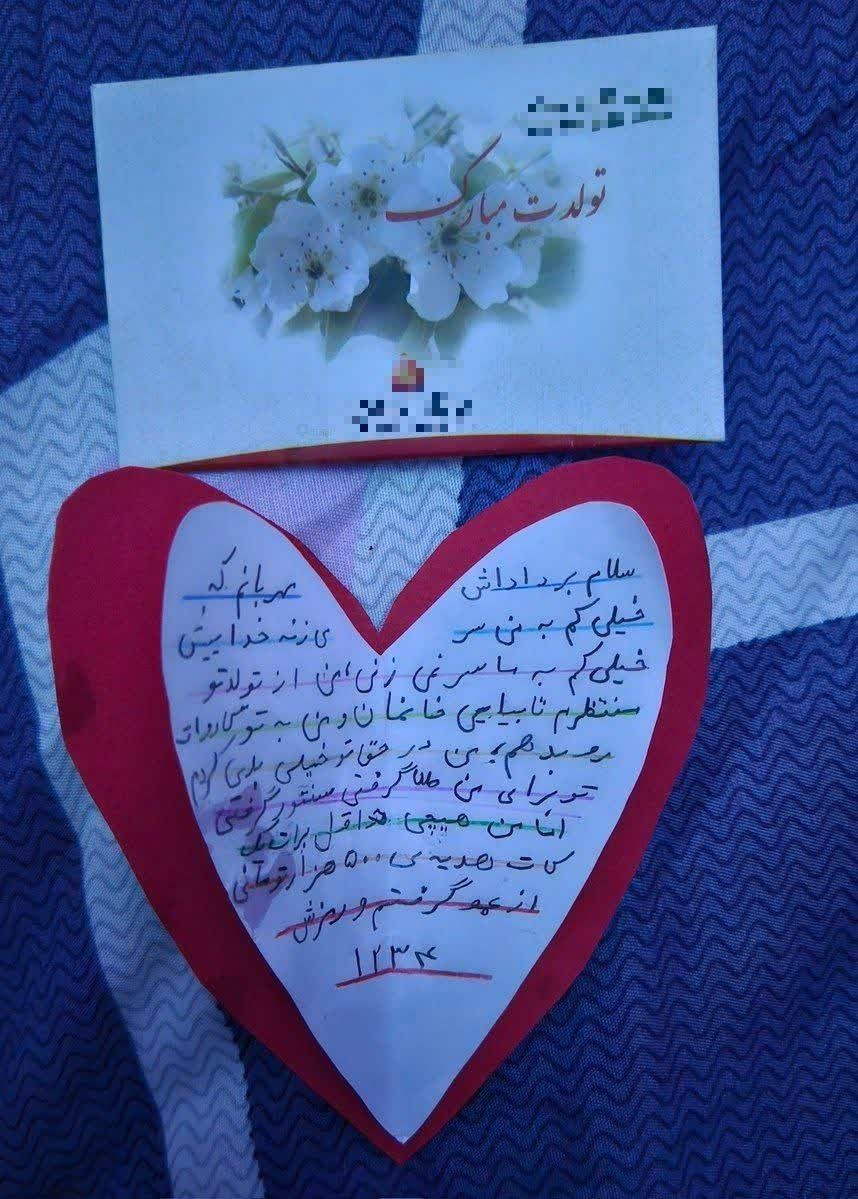 تولدت مبارک
سلام بر داداش مهربانم که
خیلی کم به من سر می زنه خداییش
خیلی کم به ما سر می زنی، من از تولد تو
منتظرم تا بیایی خانمان و من به تو
هم، من در حق تو خیلی بدی کردم
تو برای من طلا گرفتی سنتور گرفتی
اما من هیچی حداقل برات یک
کات هدیه ی ۵۰۰ هزار تومانی
از عمو گرفتم و رمزش
۱۲۳۴